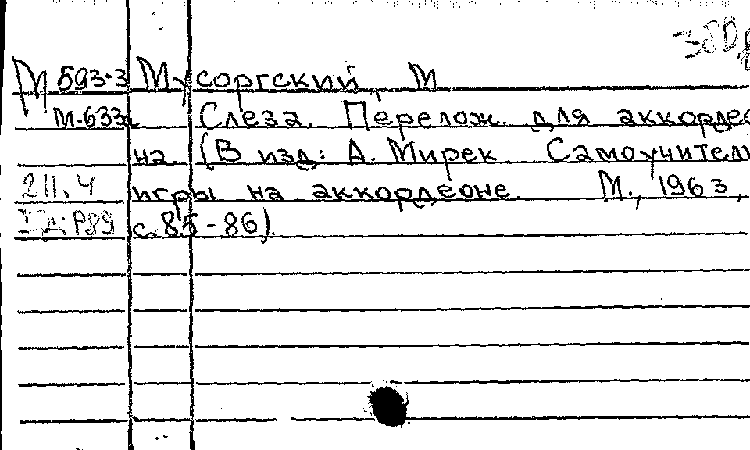 380
М 593-3 Мусоргский, М
М-633а Слеза. Перелож. для аккордео
на. (В изд: А. Мирек. Самоучитель
211.4 игры на аккордеоне. М., 1963,
Р89 с. 85-86)